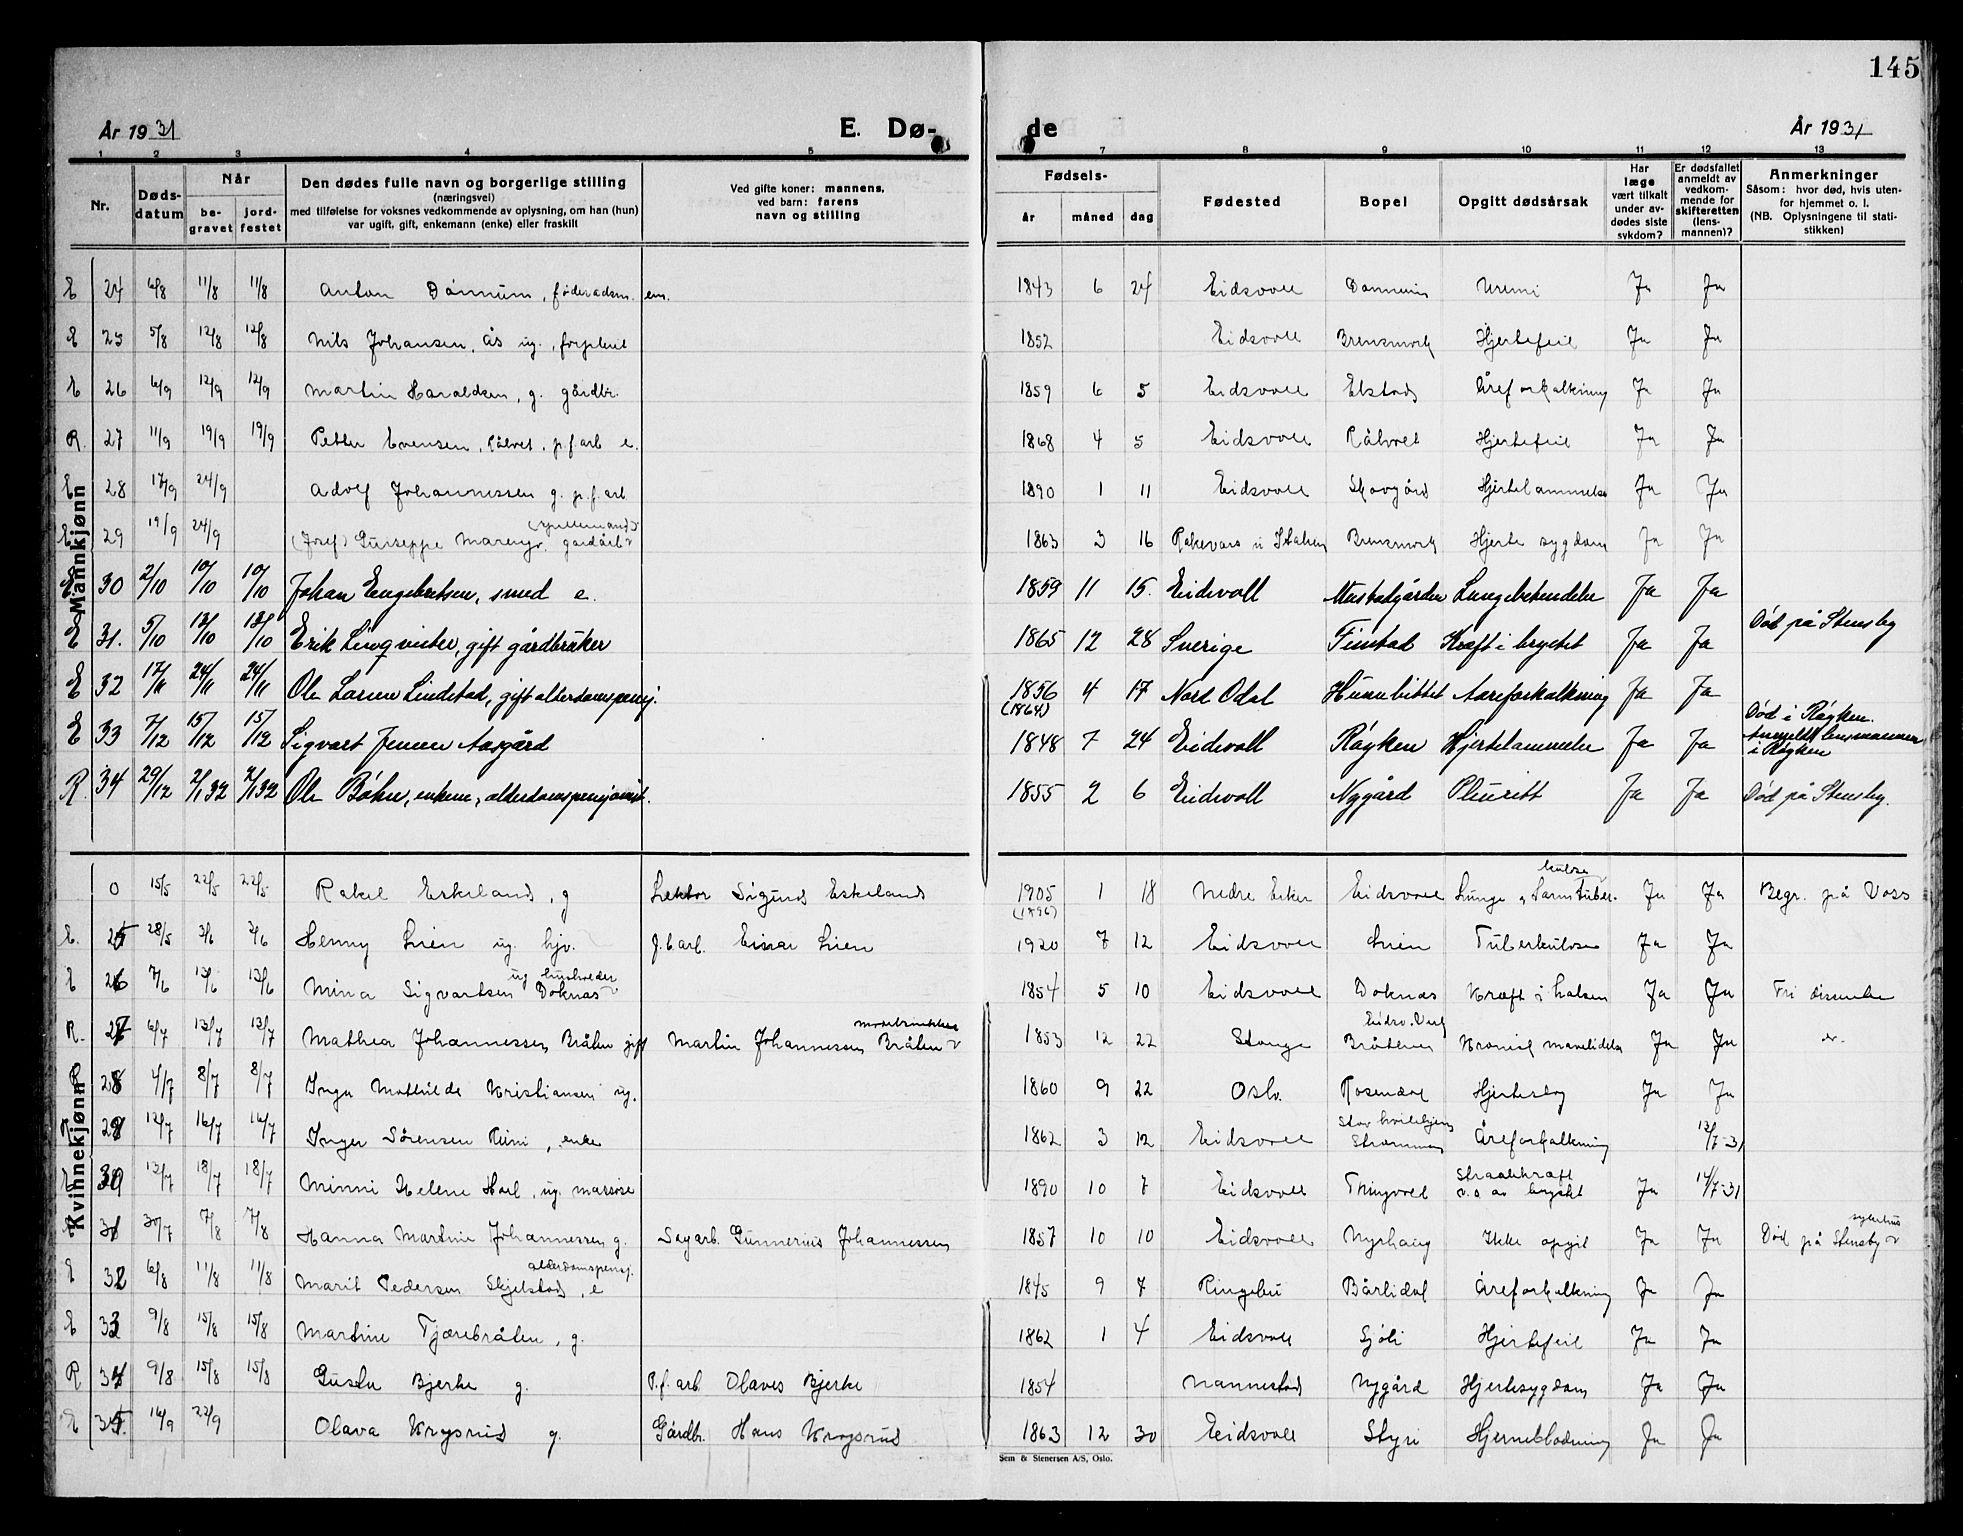 145
År 1931 E. Dø- de År 1931
1 2 3 4 5 7 8 9 10 11 12 13
Nr.
Døds-datum
Når
be-gravet
jord-festet
Den dødes fulle navn og borgerlige stilling
(næringsvei)
med tilføielse for voksnes vedkommende av oplysning, om han (hun)
var ugift, gift, enkemann (enke) eller fraskilt
Ved gifte koner: mannens,
ved barn: farens
navn og stilling
Fødsels-
år måned dag
Fødested
Bopel
Opgitt dødsårsak
Har
læge
vært tilkalt
under av-
dødes siste
sykdom?
Er dødsfallet
anmeldt av
vedkom-
mende for
skifteretten
(lens-
mannen)?
Anmerkninger
Såsom: hvor død, hvis uten-
for hjemmet o. l.
(NB. Oplysningene til stati-
stikken)
Mannkjønn
E 24 6/8 11/8 11/8 Anton Dønnum, føderadsm. em. 1843 6 24 Eidsvoll Dønnum Uremi Ja Ja
E 25 5/8 12/8 12/8 Nils Johansen, Ås ug., forpleiet 1852 Eidsvoll Brensmork Hjertefeil Ja Ja
E 26 6/9 12/9 12/9 Martin Haraldsen, g. gårdbr. 1859 6 5 Eidsvoll Elstad Åreforkalkning Ja Ja
R. 27 11/9 19/9 19/9 Petter Evensen, Råhvet, p.f.arb e. 1868 4 5 Eidsvoll Råhvet Hjertefeil Ja Ja
E 28 17/9 24/9 Adolf Johannessen g. p.f. arb 1890 1 11 Eidsvoll Skovgård Hjertelammelse Ja Ja
E 29 19/9 24/9 (Josef) Guiseppe (spillemand) gårdarb. 1863 3 16 i Italien Brensmork Hjerte sygdom Ja Ja
E 30 2/10 10/10 10/10 Johan Engebretsen, smed e. 1859 11 15. Eidsvoll Mustadgården Lungebetendelse Ja Ja
E 31. 5/10 13/10 13/10 Erik Linqvister, gift gårdbruker 1865 12 28 Sverige Finstad Kræft i brystet Ja Ja Død på Stensby
E 32 17/11 24/11 24/11 Ole Larsen Lindstad, gift alderdomspensj. 1856 (1864) 4 17 Nord Odal Hunubittet Aareforkalkning Ja Ja
E 33 7/12 15/12 15/12 Sigvart Jensen Aasgård 1848 7 24 Eidsvoll Røyken Hjertelammelse Ja Ja Død i Røyken. Anmeldt lensmannen i Røyken
R. 34 29/12 2/1 32 2/1 32 Ole Bøhn, enkem., alderdomspensjonist. 1855 2 6 Eidsvoll Nygård Pleuritt Ja Ja Død på Stensby.
Kvinnekjønn
0 15/5 22/5 22/5 Rakel Eskeland, g Lektor Sigurd Eskeland 1905 (1896) 1 18 Nedre Eiker Eidsvoll Lunge og Tarmtuberkulose Ja Ja Begr. på Voss
E. 25 28/5 3/6 3/6 Henny Lien ug. hjv. J.b.arb. Einar Lien 1920 7 12 Eidsvoll Lien Tuberkulose Ja Ja
E 26 7/6 13/6 13/6 Mina Sigvartsen Doknas ug husholder 1854 5 10 Eidsvoll Doknas Kræft i halsen Ja Ja Fri
R. 27 6/7 13/7 13/7 Mathea Johannessen Bråten gift Martin Johannessen Bråten 1853 12 22 Stange Eidsv. Verk Bråtene Kronisk mavelidelse Ja Ja
R 28 4/7 8/7 8/7 Inga Mathilde Kristiansen ug. 1860 9 22 Oslo. Rosendal Hjerteslag Ja Ja
R 29 12/7 16/7 16/7 Inger Sørensen Rimi, enke 1862 3 12 Eidsvoll Strømmen Åreforkalkning 13/7-31
E 30 13/7 18/7 18/7 Minni Helene Hoel, ug. massøse 1890 10 7 Eidsvoll Thingvoll Straalekræft v.s av brystet Ja 14/7-31
31 30/7 7/8 7/8 Hanna Martine Johannessen g. Sagarb. Gunnerius Johannessen 1857 10 10 Eidsvoll Nyhaug Ikke opgit Ja Ja Død på Stensby sykehus
E 32 6/8 11/8 11/8 Marit Pedersen Skjelstad, e alderdomspensj. 1845 9 7 Ringebu Bårlidal Åreforkalkning Ja Ja
E 33 9/8 15/8 15/8 Martine Tjærebråten, g. 1862 1 4 Eidsvoll Sjøli Hjertefeil Ja Ja
R 34 9/8 15/8 15/8 Gusta Bjerke g. P.f. arb. Olaves Bjerke 1854 Nannestad Nygård Hjertesygdom Ja Ja
E 35. 16/9 22/9 Olava Krysrud g. Gårdbr. Hans Krysrud 1863 12 30 Eidsvoll Styri Hjerneblødning Ja Ja
Sem & Stenersen A/S, Oslo.